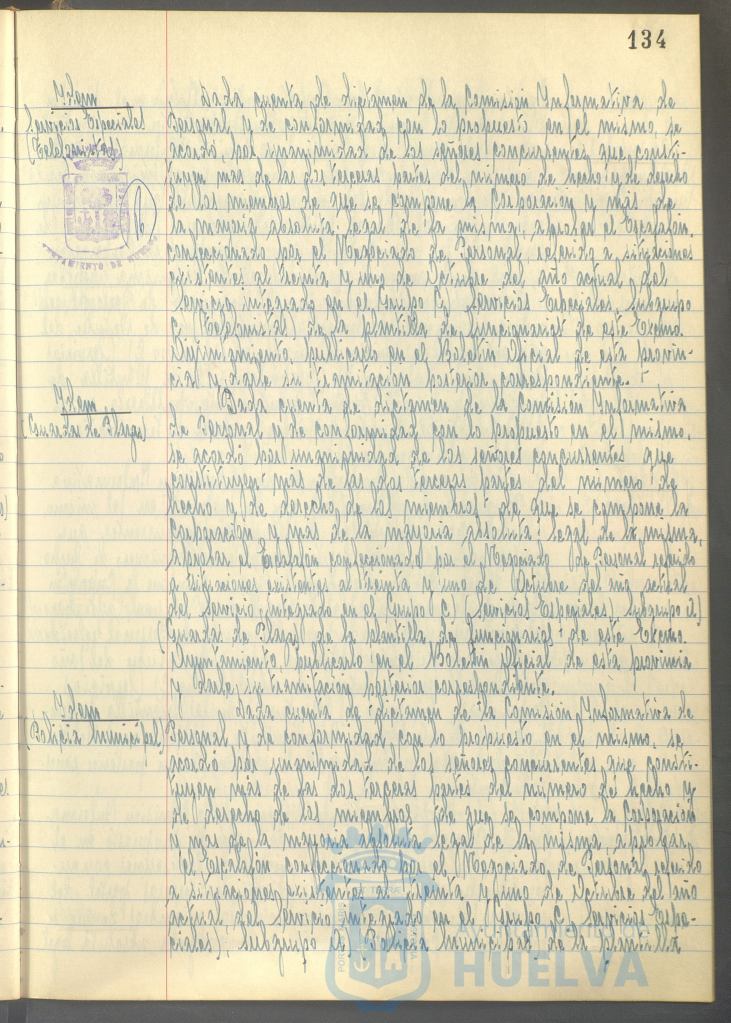 134
Idem
Servicios Especiales
(Telefonistas)
AYUNTAMIENTO DE HUELVA
Dada cuenta de dictamen de la Comisión Informativa de
Personal y de conformidad con lo propuesto en el mismo, se
acordó, por unanimidad de los señores concurrentes que consti-
tuyen más de las dos terceras partes del número de hecho y de derecho
de los miembros de que se compone la Corporación y más de
la mayoría absoluta legal de la misma, aprobar el Escalafón
confeccionado por el Negociado de Personal, referido a situaciones
existentes al treinta y uno de Octubre del año actual del
Servicio integrado en el Grupo C) Servicios Especiales, Subgrupo
c) (Telefonistas) de la plantilla de funcionarios de este Excmo.
Ayuntamiento, publicarlo en el Boletín Oficial de esta provin-
cia y darle su tramitación posterior correspondiente.
Idem
(Guardas de Playa)
Dada cuenta de dictamen de la Comisión Informativa
de Personal y de conformidad con lo propuesto en el mismo,
se acordó por unanimidad de los señores concurrentes que
constituyen más de las dos terceras partes del número de
hecho y de derecho de los miembros de que se compone la
Corporación y más de la mayoría absoluta legal de la misma,
aprobar el Escalafón confeccionado por el Negociado de Personal referido
a situaciones existentes al treinta y uno de Octubre del año actual
del Servicio integrado en el Grupo C) (Servicios Especiales) Subgrupo
(Guardas de Playa) de la plantilla de funcionarios de este Excmo.
Ayuntamiento, publicarlo en el Boletín Oficial de esta provincia
y darle su tramitación posterior correspondiente.
Idem
(Policía Municipal)
Dada cuenta de dictamen de la Comisión Informativa de
Personal y de conformidad con lo propuesto en el mismo, se
acordó por unanimidad de los señores concurrentes que consti-
tuyen más de las dos terceras partes del número de hecho y
de derecho de los miembros de que se compone la Corporación
y más de la mayoría absoluta legal de la misma, aprobar
el Escalafón confeccionado por el Negociado de Personal referido
a situaciones existentes al treinta y uno de Octubre del año
actual, del Servicio integrado en el Grupo C) Servicios Espe-
ciales), Subgrupo a) Policía Municipal de la plantilla
Ayuntamiento de
HUELVA